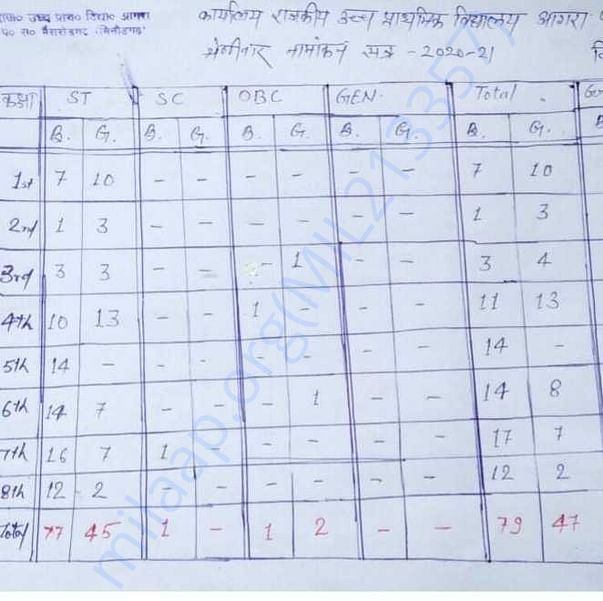 उच्च प्राo विद्याo आगरा
पंo सo भैंसरोडगढ़ (चित्तौड़गढ़)
कार्यालय राजकीय उच्च प्राथमिक विद्यालय आगरा
श्रेणीवार नामांकन सत्र - 2020-21
कक्षा ST SC OBC GEN. Total
B. G. B. G. B. G. B. G. B. G. B
1st 7 10 - - - - - - 7 10
2nd 1 3 - - - - - - 1 3
3rd 3 3 - - - 1 - - 3 4
4th 10 13 - - 1 - - - 11 13
5th 14 - - - - - - - 14 -
6th 14 7 - - - 1 - - 14 8
7th 16 7 1 - - - - - 17 7
8th 12 2 - - - - - 12 2
Total 77 45 1 - 1 2 - - 79 47
milaap.org(MIL2133577